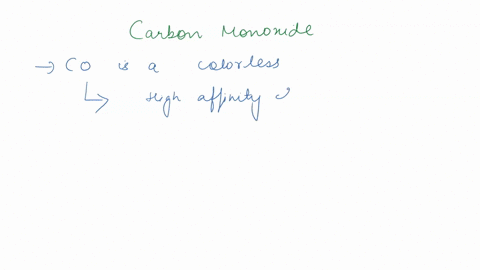 Carbon Monoxide
→ CO is a colorless
↳ High affinity